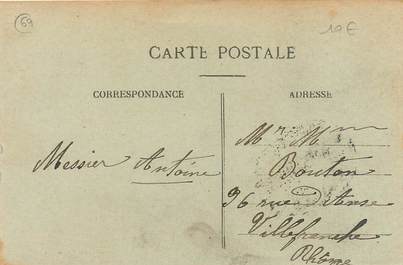 69
10€
CARTE POSTALE
CORRESPONDANCE
ADRESSE
Messier Antoine
Mr Mme
Bouton
96 rue d'Anse
Villefranche
Rhône